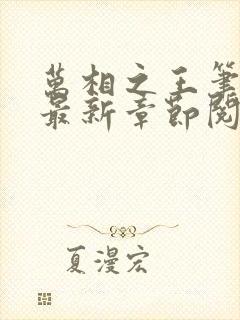 萬相之王筆
最新章節閱
夏漫宏